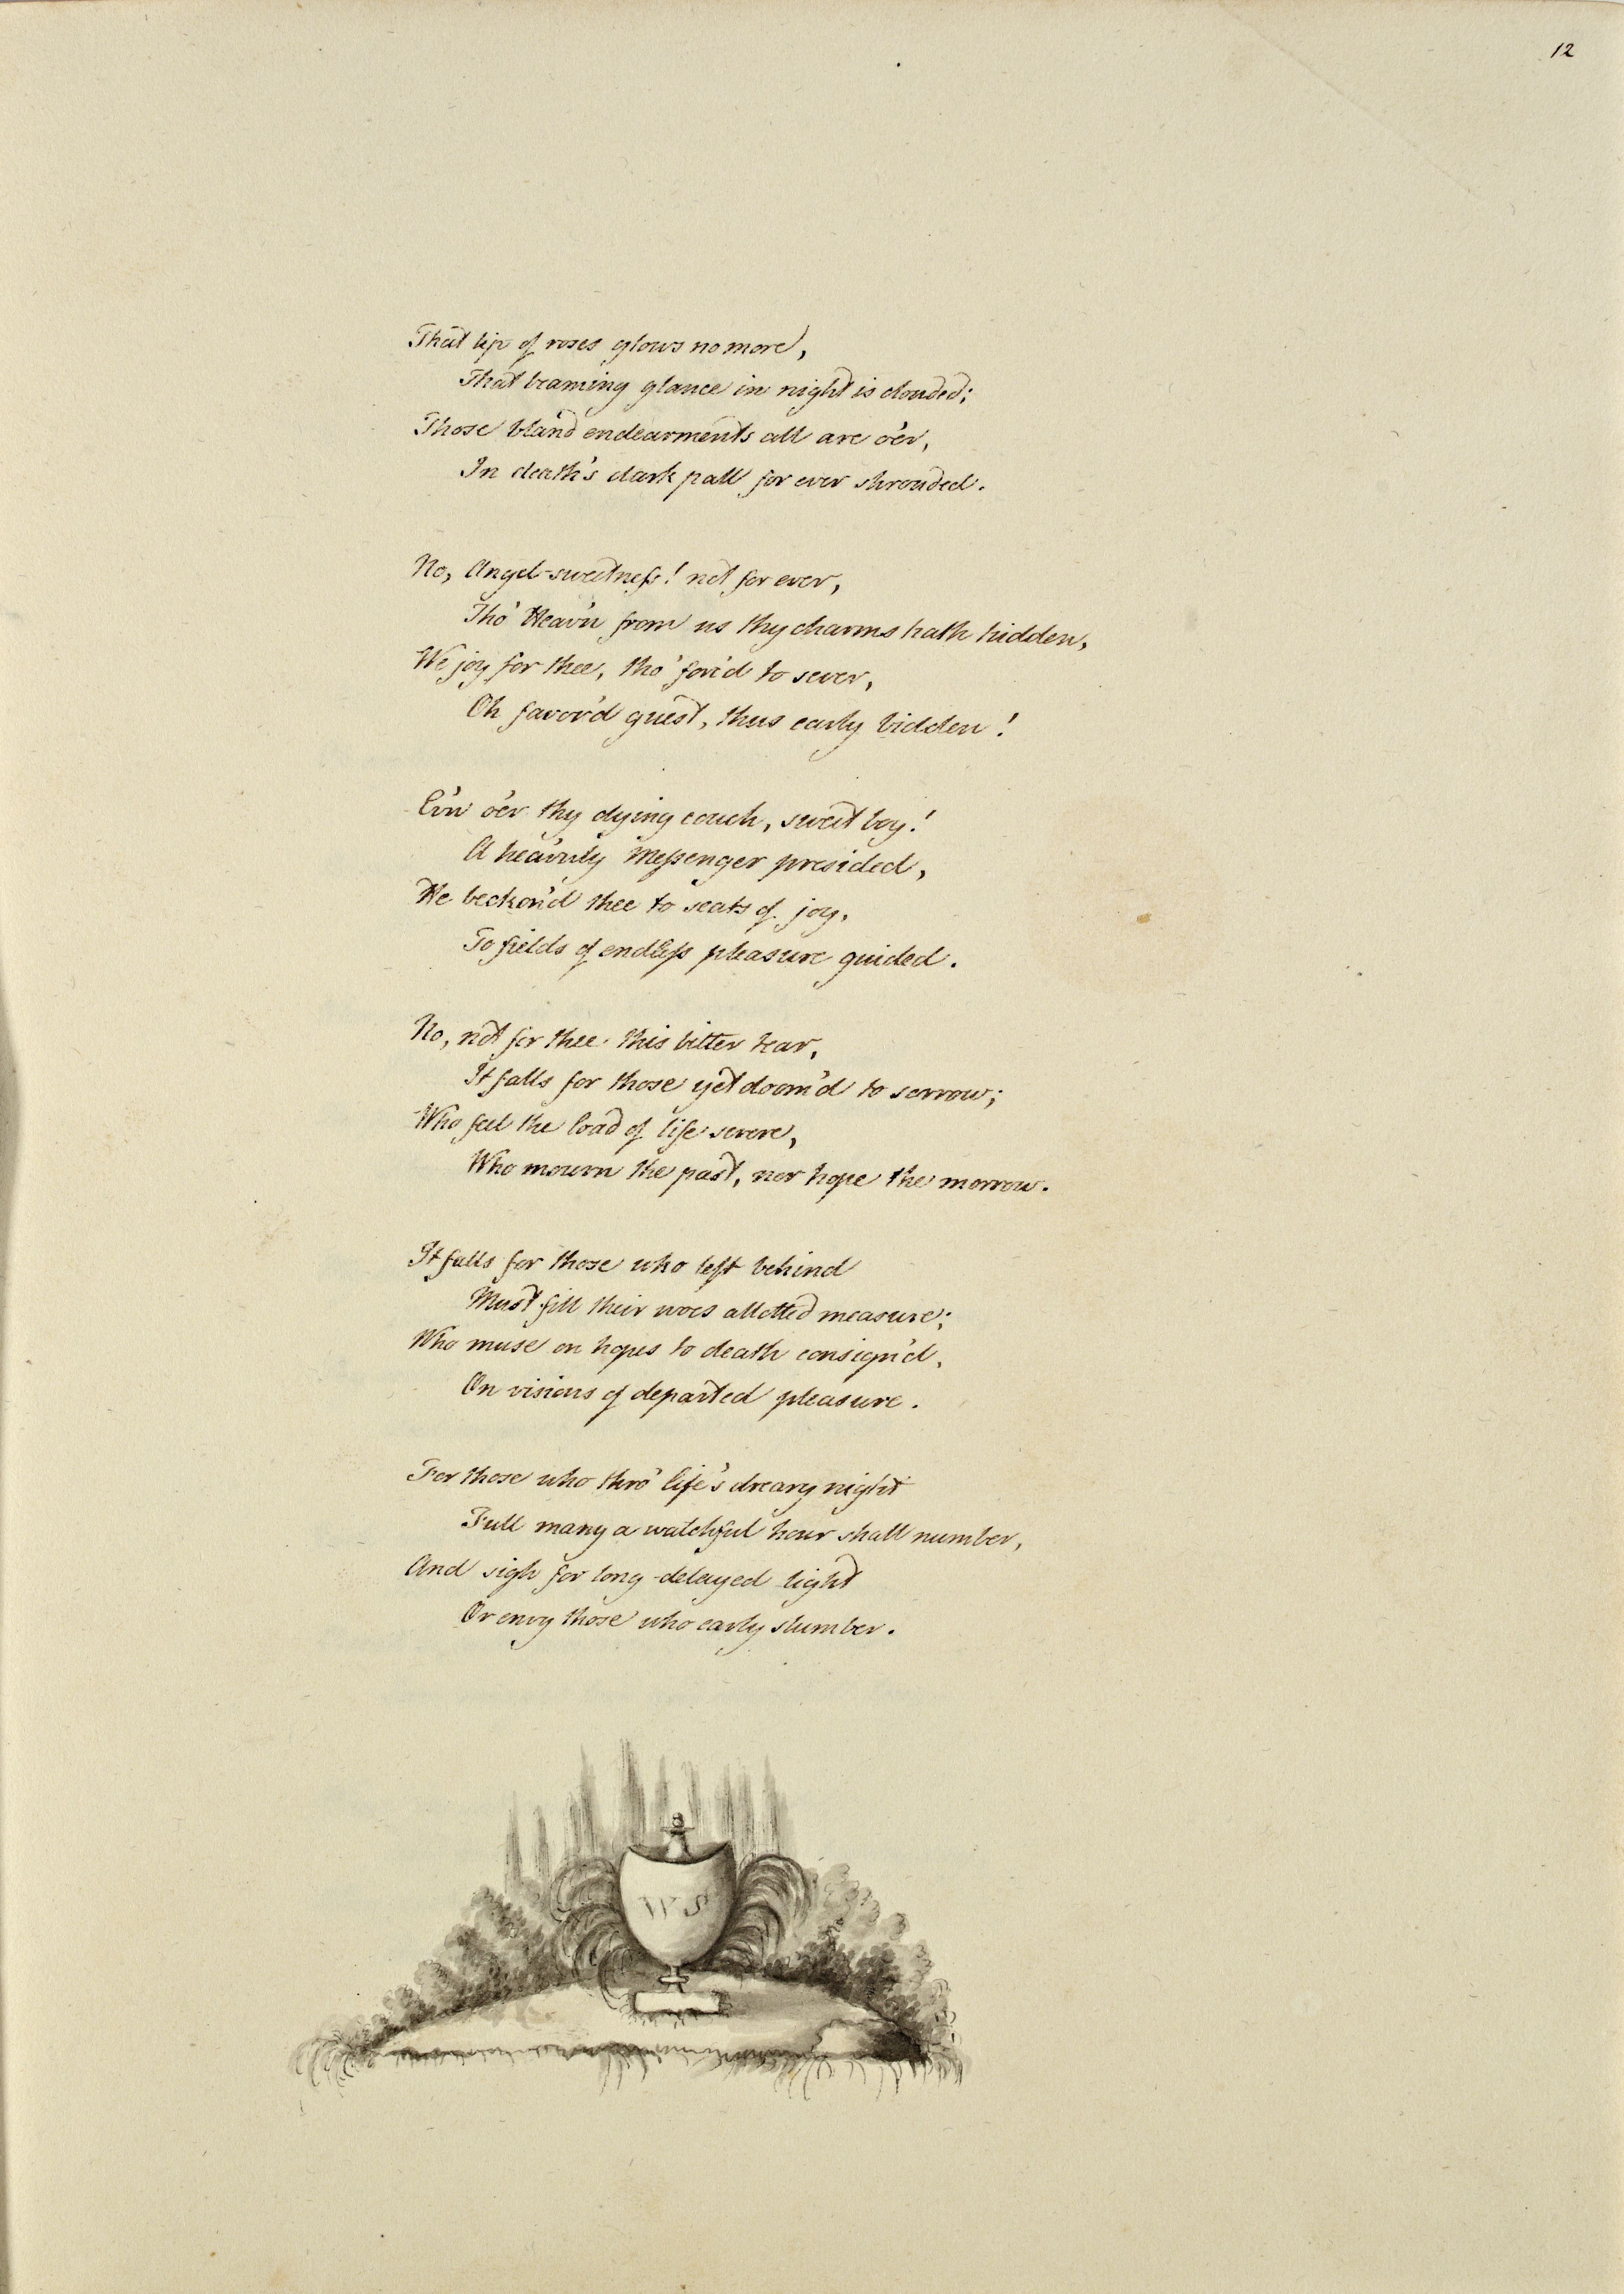 12
That lip of roses glows no more,
That beaming glance in night is clouded;
Those bland endearments all are o'er,
In death's dark pall for ever shrouded.
No, Angel-sweetness! not for ever,
Tho' Heav'n from us thy charms hath hidden,
We joy for thee, tho' forc'd to sever,
Oh favor'd guest, thus early bidden!
Ev'n o'er thy dying couch, sweet boy!
A heav'nly Messenger presided,
He beckon'd thee to seats of joy,
To fields of endless pleasure guided.
No, not for thee this bitter tear,
It falls for those yet doom'd to sorrow;
Who feel the load of life severe,
Who mourn the past, nor hope the morrow.
It falls for those who left behind
Must fill their woes allotted measure;
Who muse on hopes to death consign'd,
On visions of departed pleasure.
For those who thro' life's dreary night
Full many a watchful hour shall number,
And sigh for long-delayed light
Or envy those who early slumber.
WS